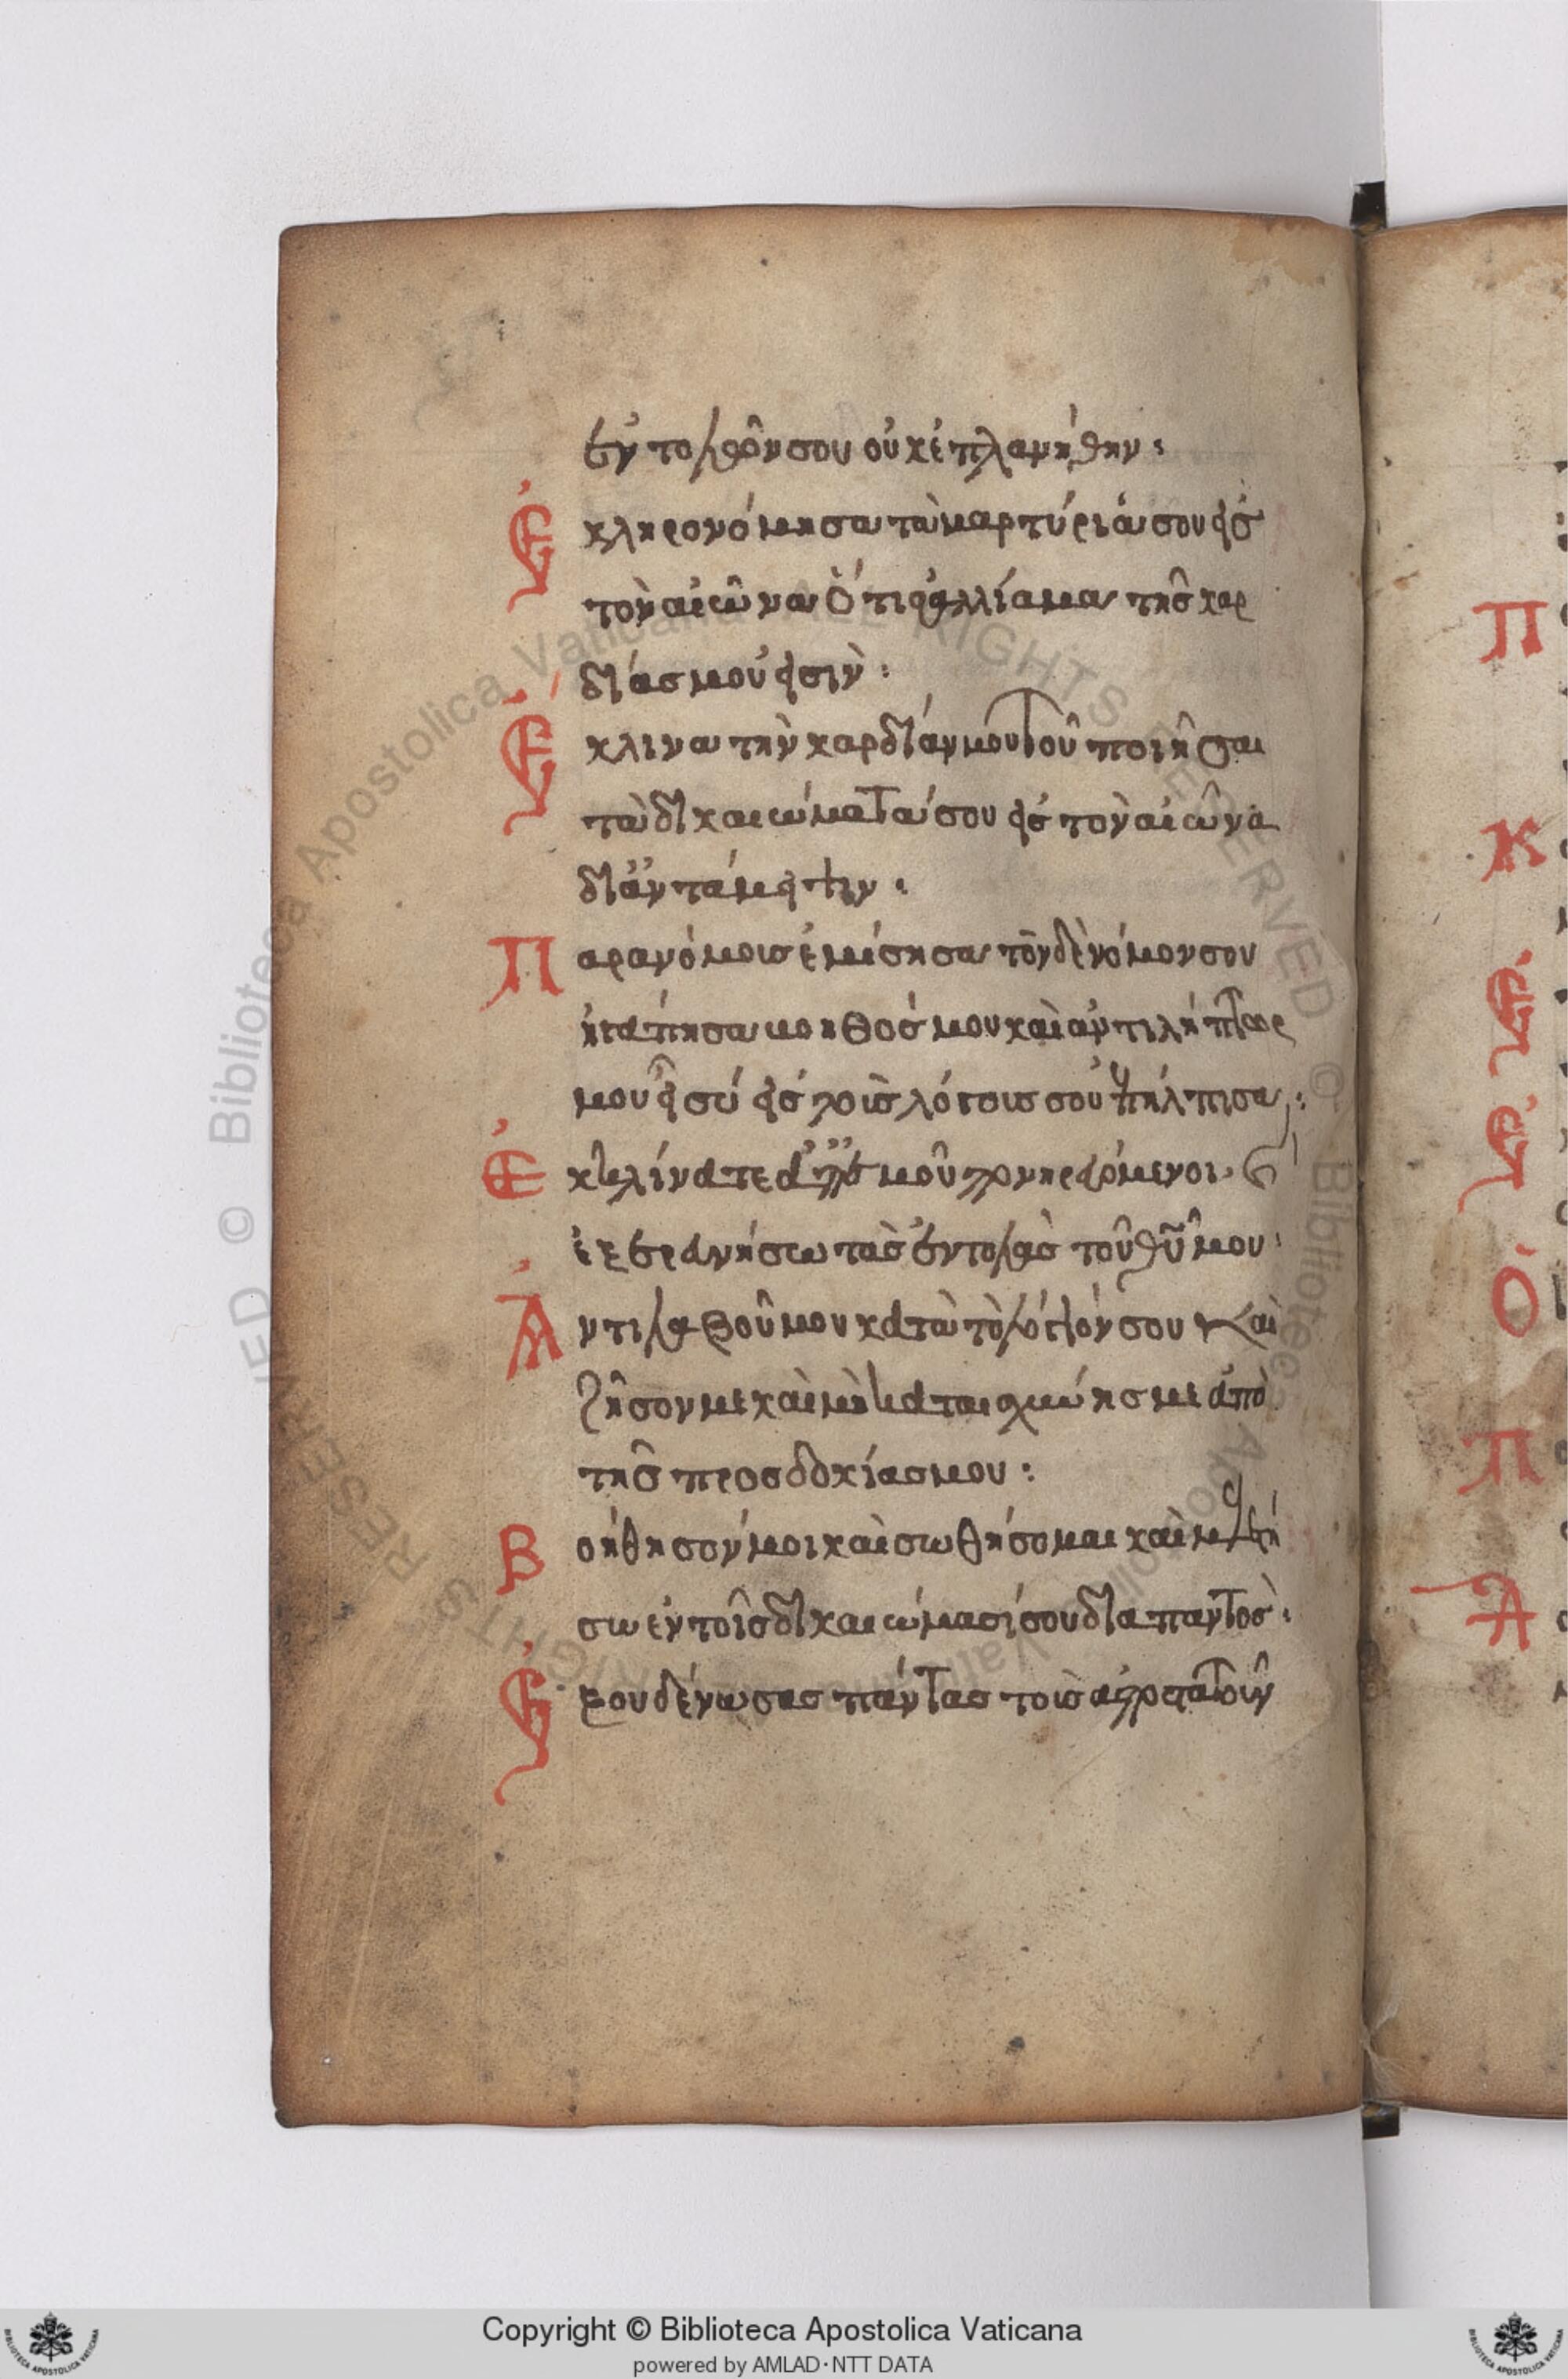 ἐντολῶν σου οὐκ ἐπλανήθην :
Ἐκληρονόμησα τὰ μαρτύριά σου εἰς
τὸν αἰῶνα ὅτι ἀγαλλίαμα τῆς καρ
δίας μου εἰσὶν :
Ἔκλινα τὴν καρδίαν μου τοῦ ποιῆσαι
τὰ δικαιώματά σου εἰς τὸν αἰῶνα
δι ἀντάμειψιν :
Παρανόμοις ἐμίσησα τὸν δὲ νόμον σου
ἠγάπησα βοηθός μου καὶ ἀντιλήπτωρ
μου εἶ σύ εἰς τοὺς λόγους σου ἐπήλπισα :
Ἐκκλίνατε ἀπ ἐμοῦ πονηρευόμενοι καὶ
ἐξερευνήσω τὰς ἐντολὰς τοῦ θῦ μου :
Ἀντιλαβοῦ μου κατὰ τὸ λόγιόν σου καὶ
ζῆσόν με καὶ μὴ καταισχύνῃς με ἀπὸ
τῆς προσδοκίας μου :
Βοήθησόν μοι καὶ σωθήσομαι καὶ μελετή
σω ἐν τοῖς δικαιώμασί σου διαπαντὸς :
Ἐξουδένωσας πάντας τοὺς ἀποστατοῦν
Π
Κ
Ε
Ε
Ὁ
Π
Α
Copyright © Biblioteca Apostolica Vaticana
powered by AMLAD·NTT DATA